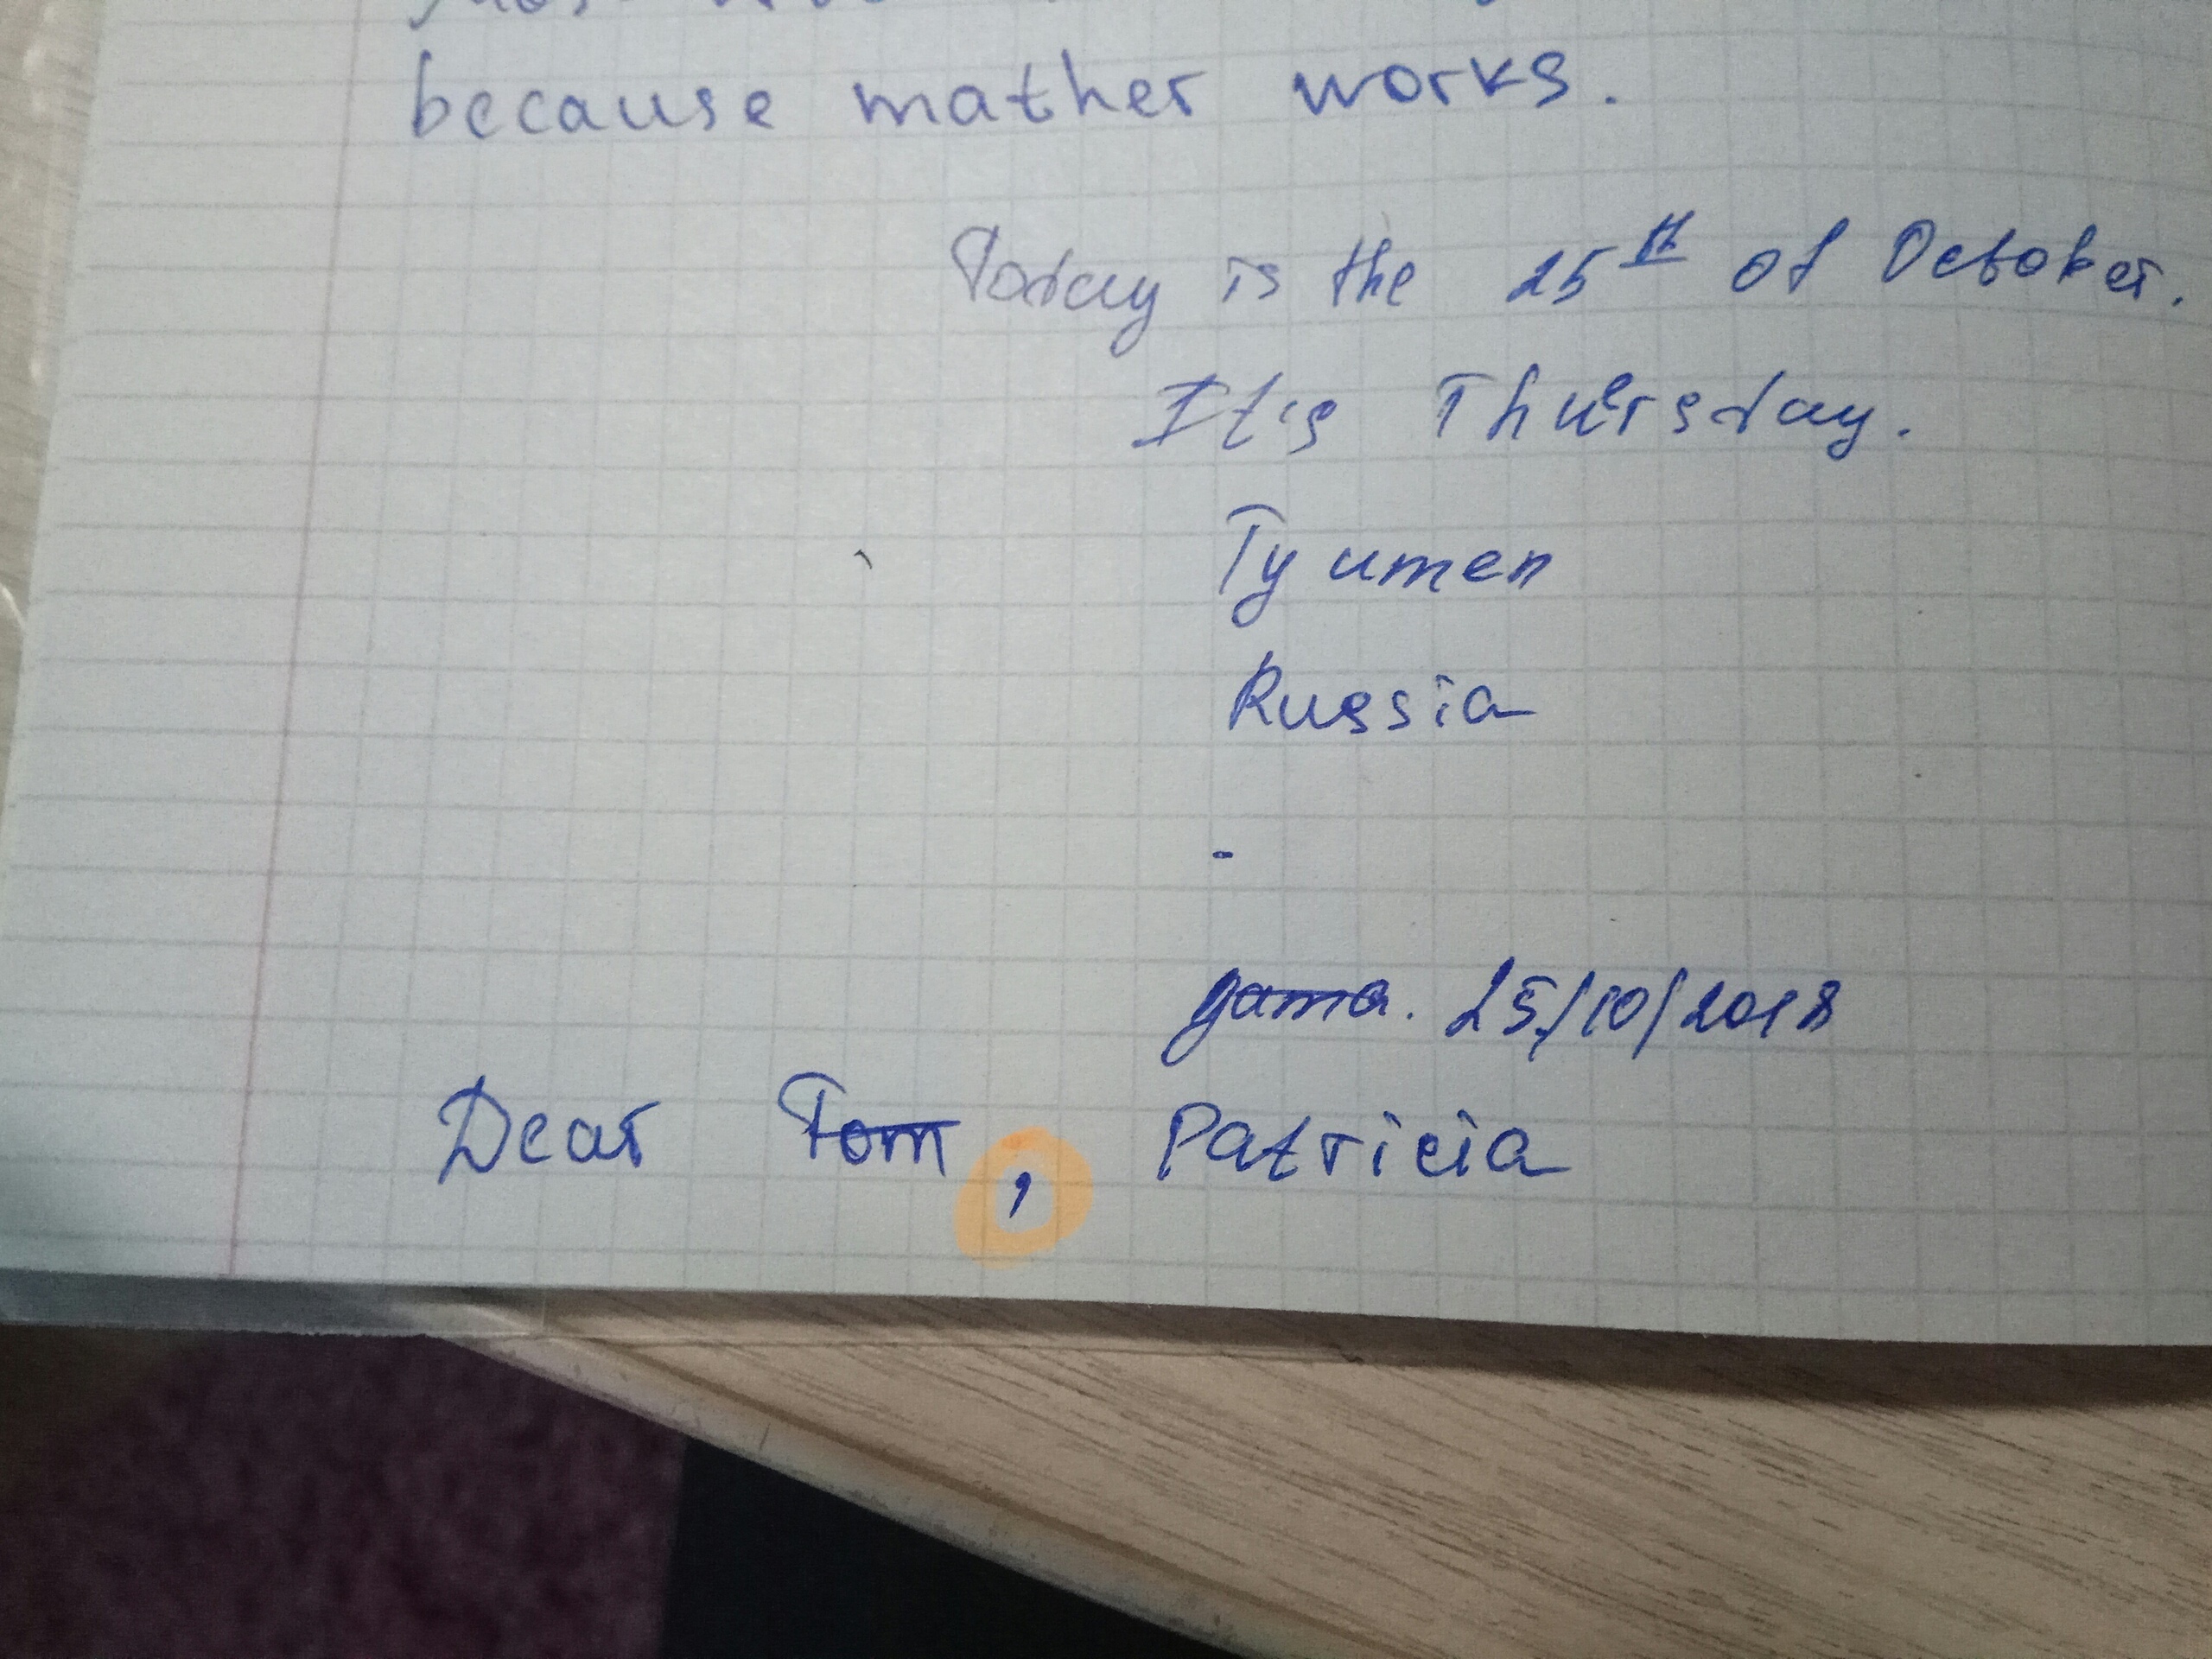 because mather works.
Today is the 25th of October.
It's Thursday.
Tyumen
Russia
-
дата. 25/10/2018
Dear Tom, Patricia